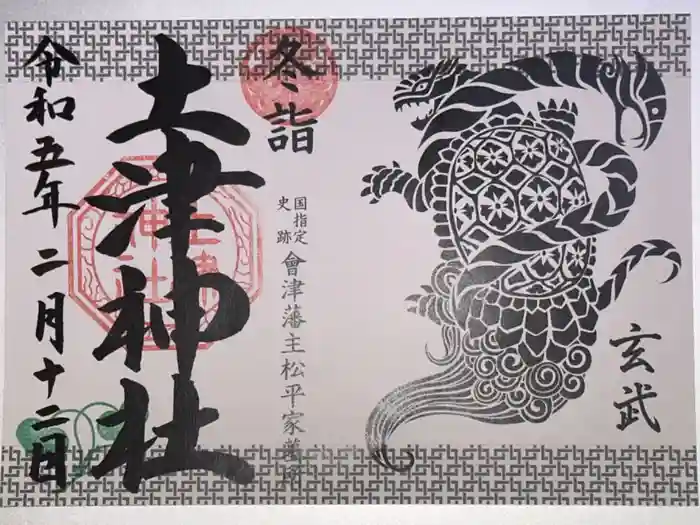 冬詣
国指定
史跡
會津藩主松平家墓所
土津神社
令和五年二月十二日
玄武